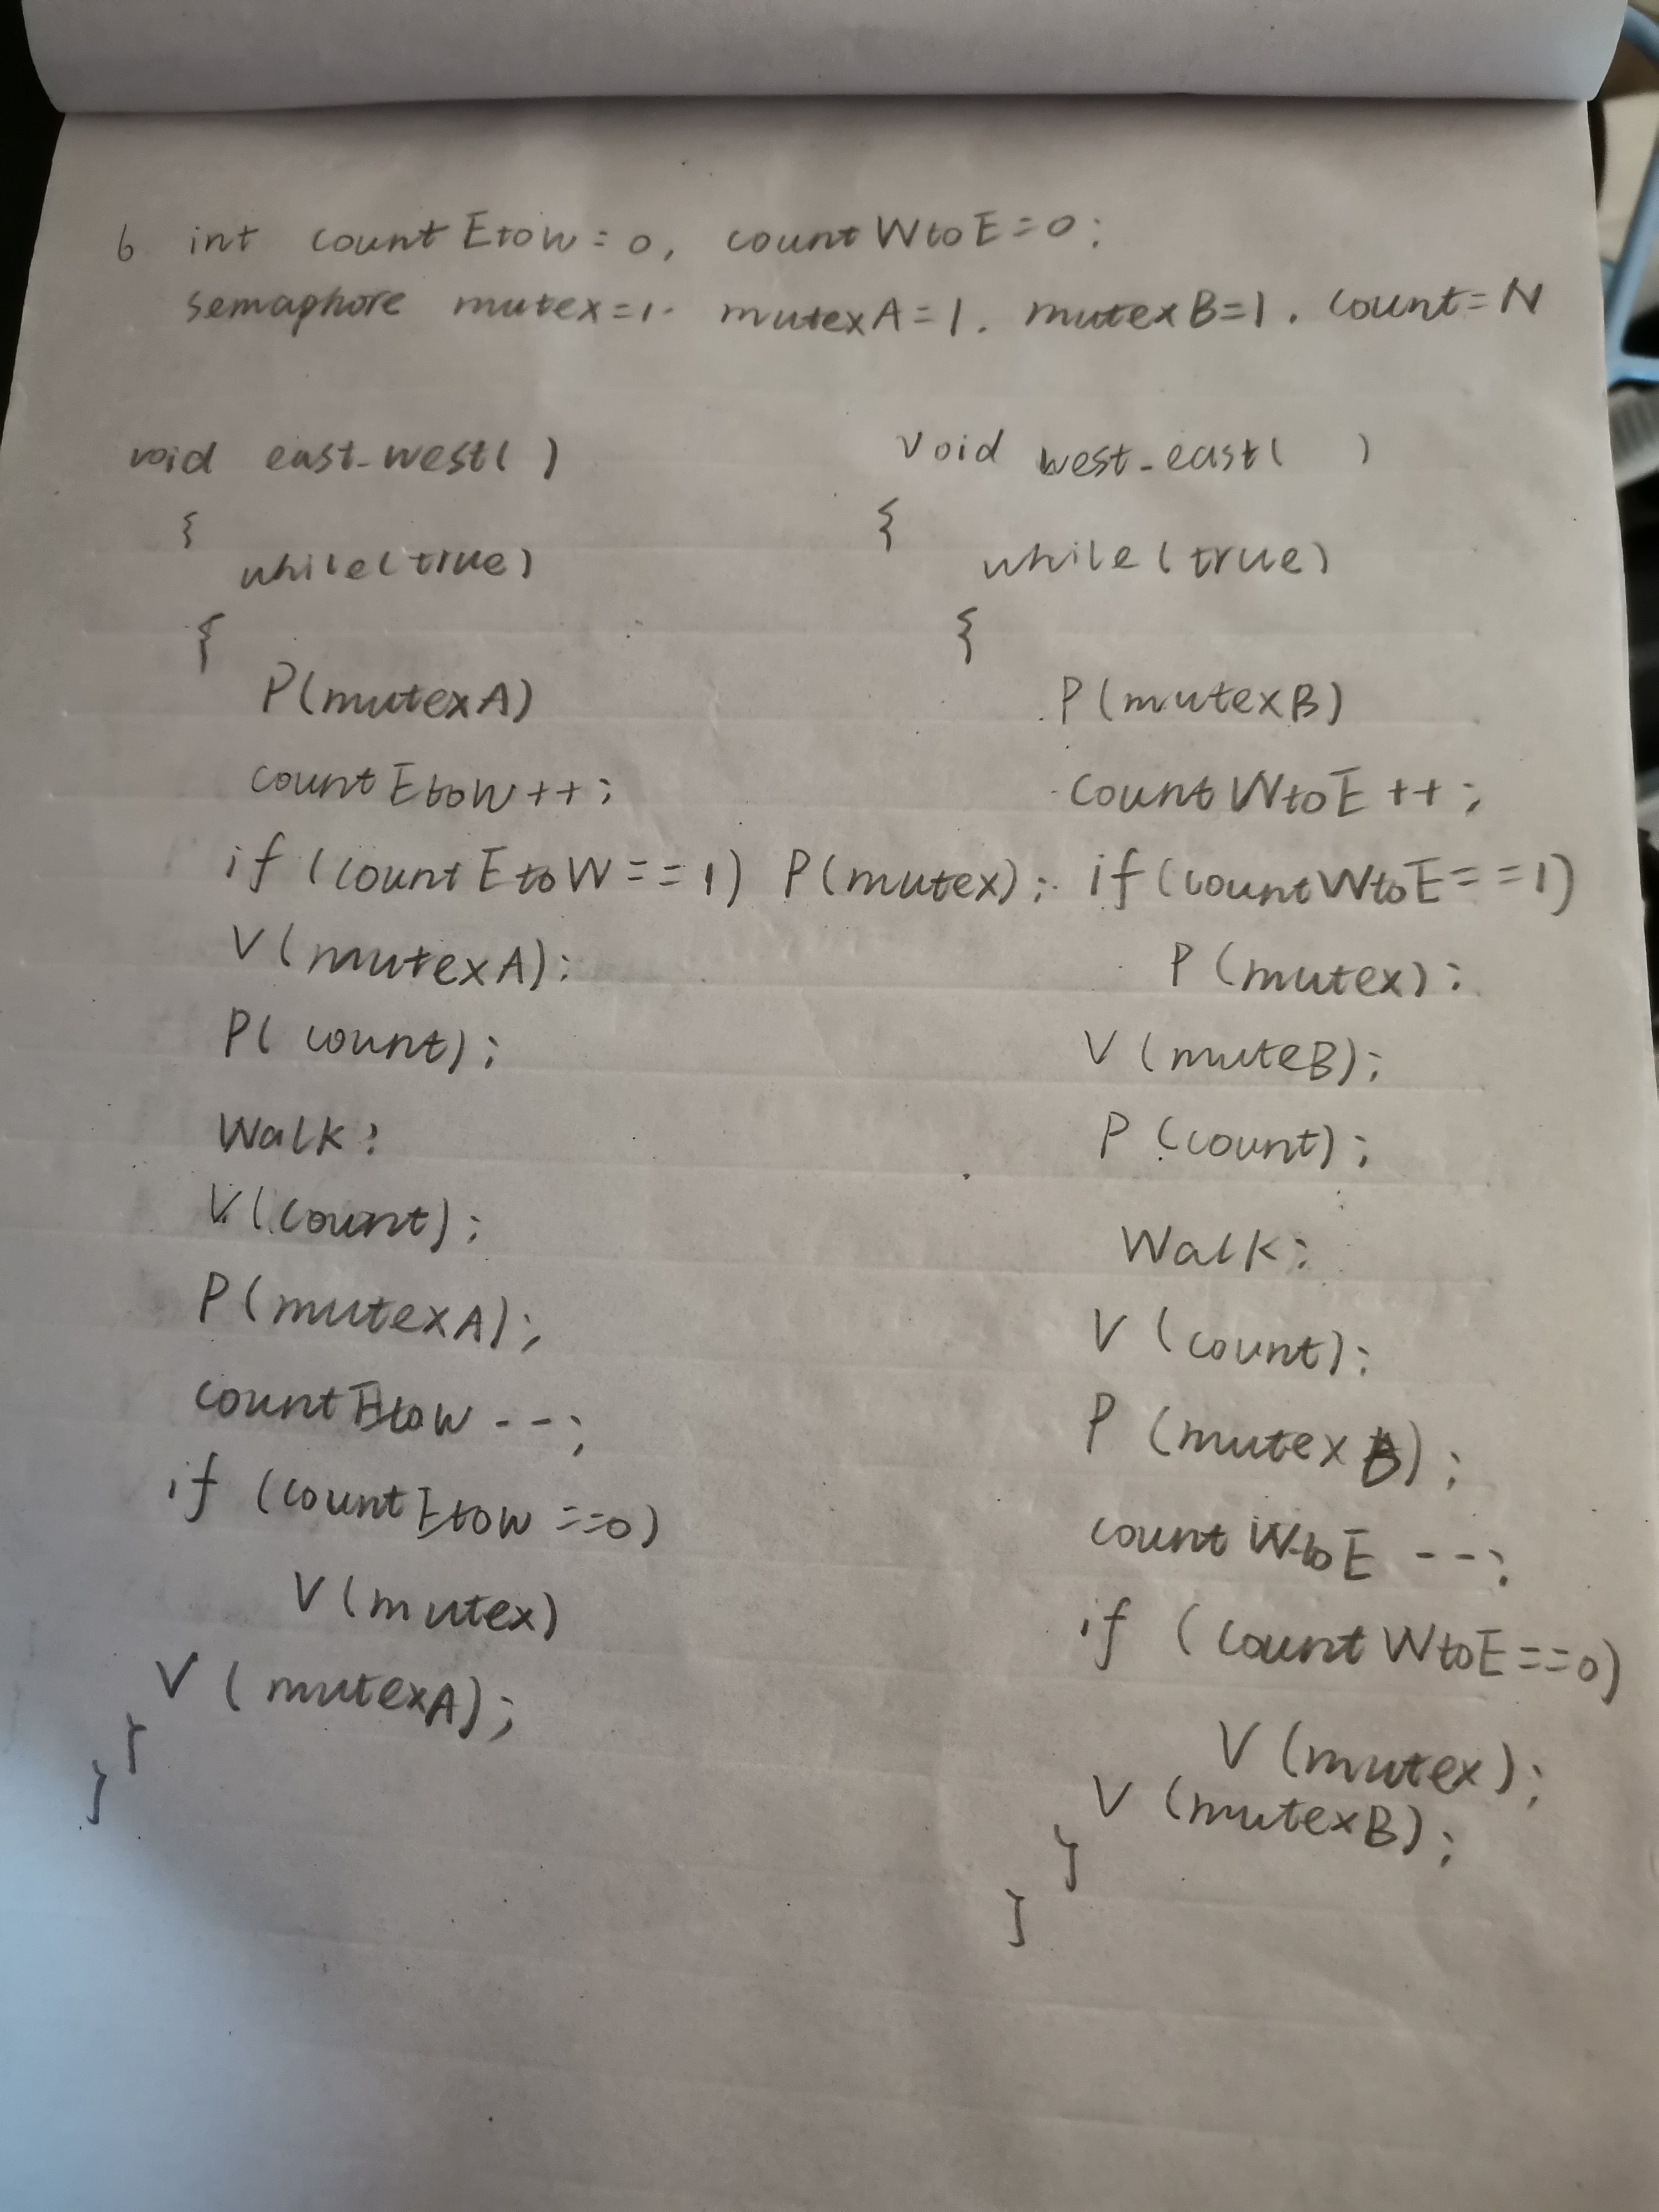 6 int count EtoW=0, count WtoE=0;
semaphore mutex=1. mutexA=1. mutexB=1. count=N
void east-west( )
{
while(true)
{
P(mutexA)
count EtoW++;
if (count EtoW==1) P(mutex);
V(mutexA);
P( count);
Walk;
V(count);
P(mutexA);
count EtoW --;
if (count EtoW ==0)
V(mutex)
V (mutexA);
}
}
void west-east( )
{
while(true)
{
P(mutexB)
count WtoE ++;
if (count WtoE==1)
P (mutex);
V (muteB);
P (count);
Walk;
V (count);
P (mutex B);
count WtoE --;
if (count WtoE==0)
V (mutex);
V (mutexB);
}
}